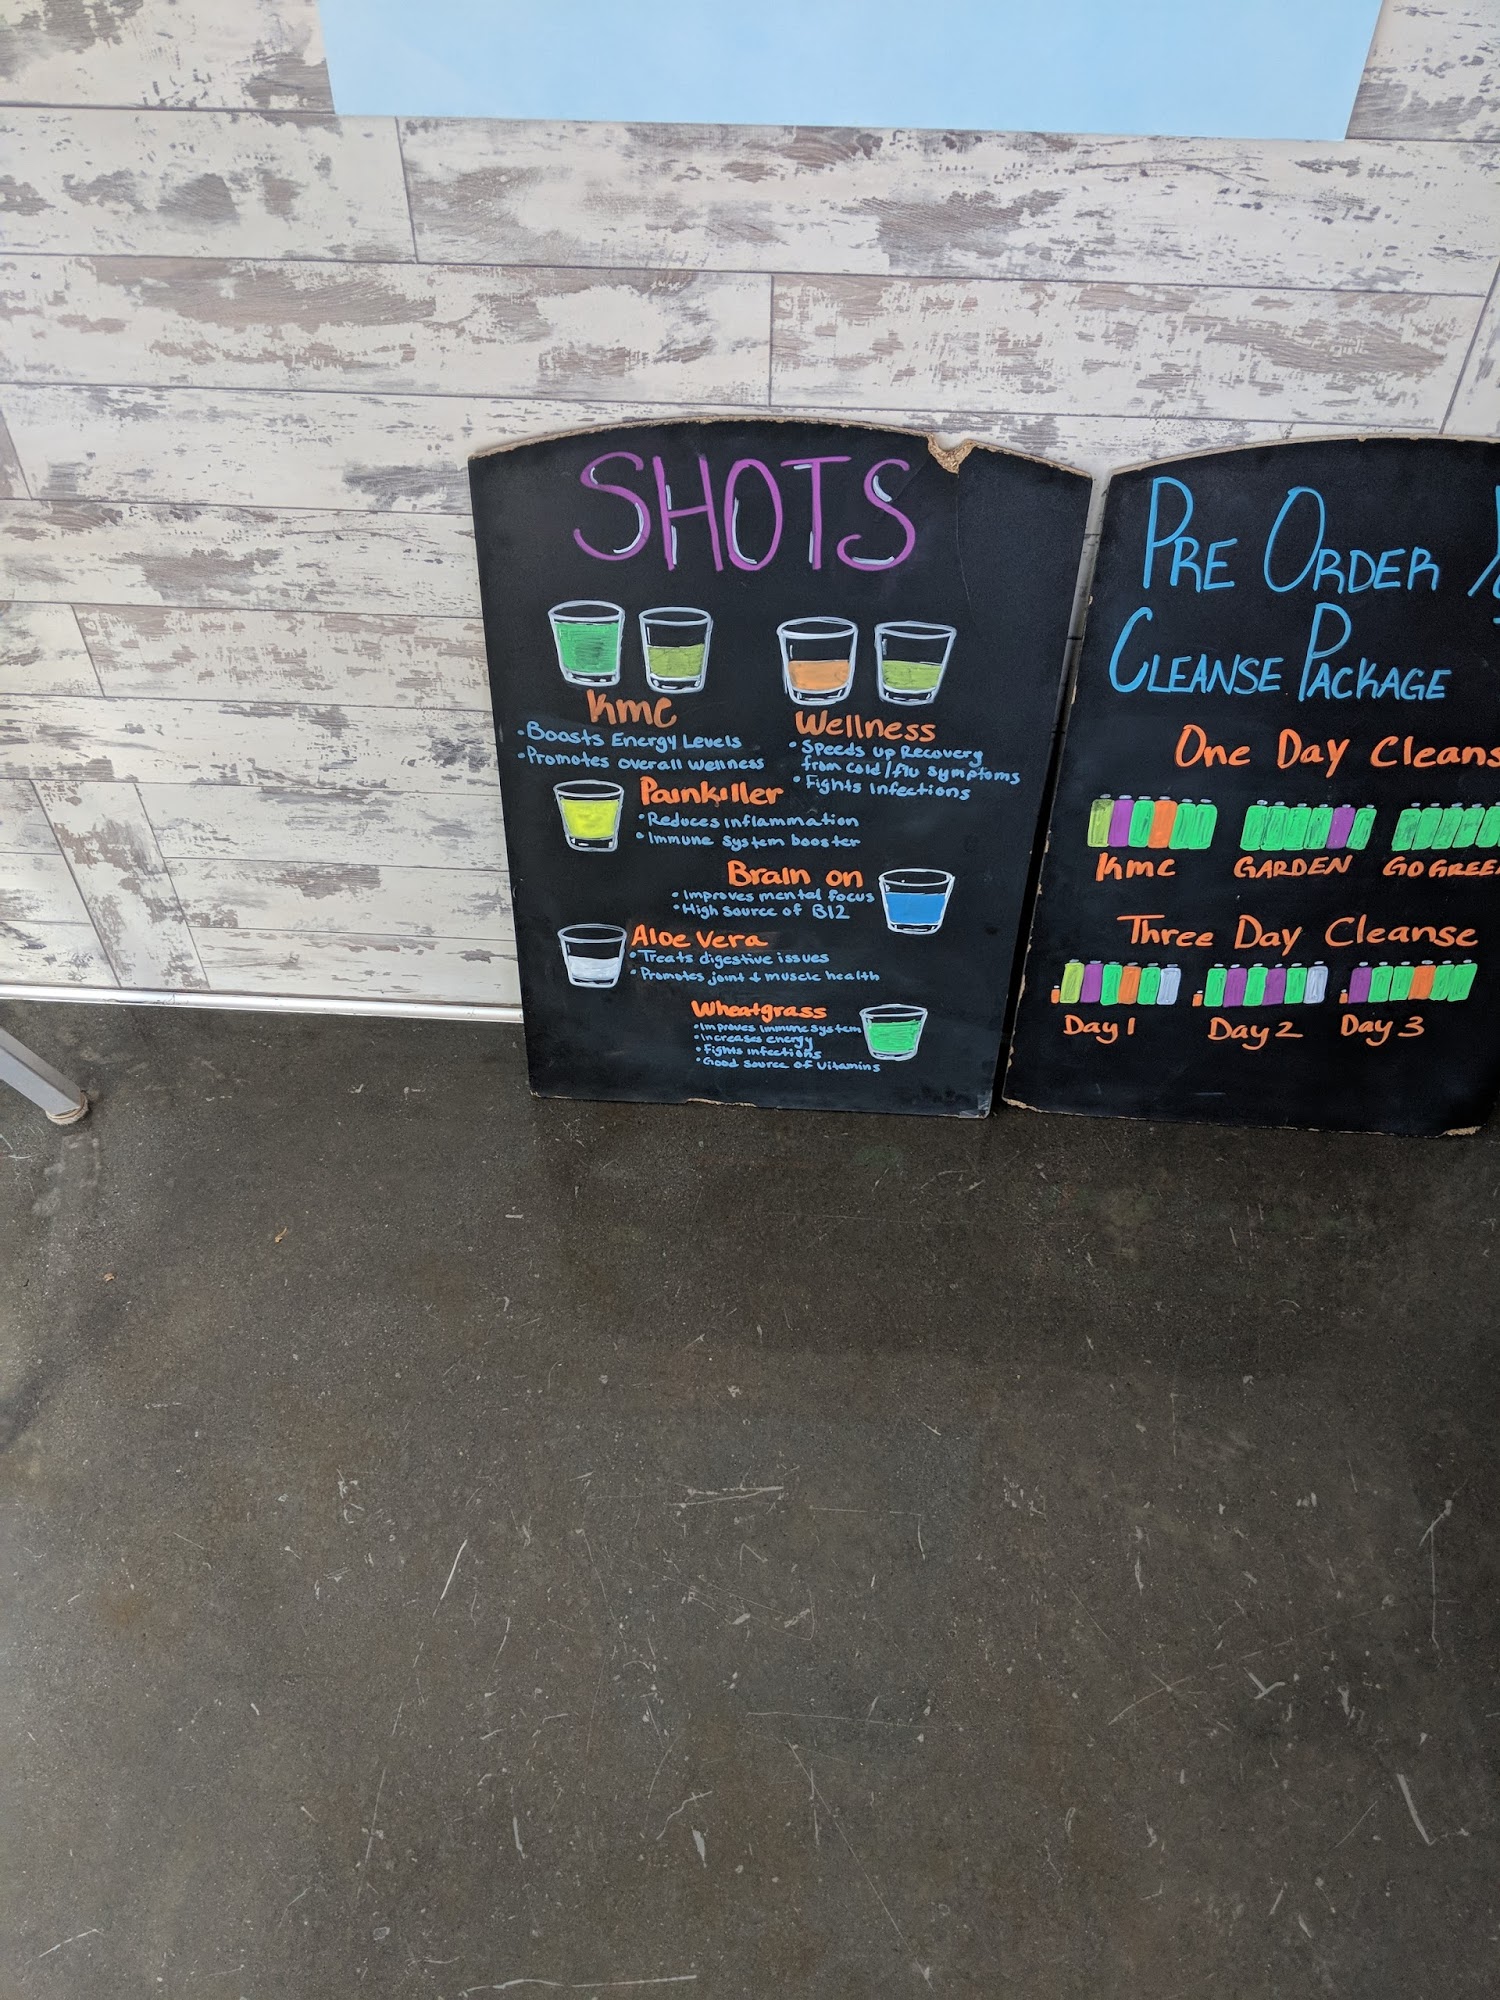 SHOTS
KMC
• Boosts Energy Levels
• Promotes overall wellness
Wellness
• Speeds up Recovery
from cold/flu symptoms
• Fights Infections
Painkiller
• Reduces inflammation
• Immune system booster
Brain on
• Improves mental focus
• High Source of B12
Aloe Vera
• Treats digestive issues
• Promotes joint & muscle health
Wheatgrass
• Improves immune system
• Increases energy
• Fights infections
• Good Source of Vitamins
PRE ORDER
CLEANSE PACKAGE
One Day Cleans
KMC GARDEN GO GREE
Three Day Cleanse
Day 1 Day 2 Day 3